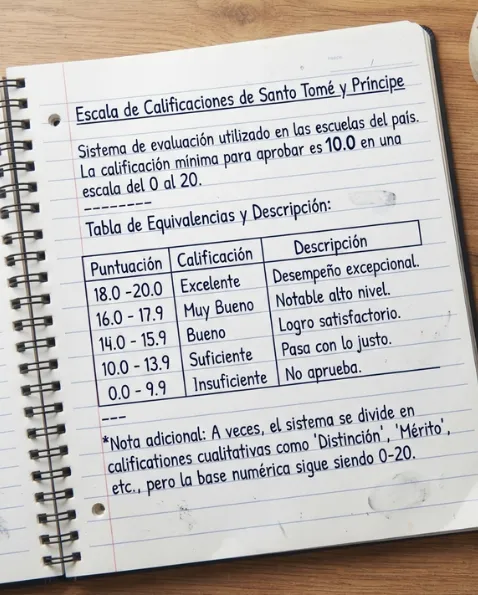 Escala de Calificaciones de Santo Tomé y Príncipe
Sistema de evaluación utilizado en las escuelas del país.
La calificación mínima para aprobar es 10.0 en una
escala del 0 al 20.
--------
Tabla de Equivalencias y Descripción:
Puntuación Calificación Descripción
18.0 - 20.0 Excelente Desempeño excepcional.
16.0 - 17.9 Muy Bueno Notable alto nivel.
14.0 - 15.9 Bueno Logro satisfactorio.
10.0 - 13.9 Suficiente Pasa con lo justo.
0.0 - 9.9 Insuficiente No aprueba.
---
*Nota adicional: A veces, el sistema se divide en
califications cualitativas como 'Distinción', 'Mérito',
etc., pero la base numérica sigue siendo 0-20.